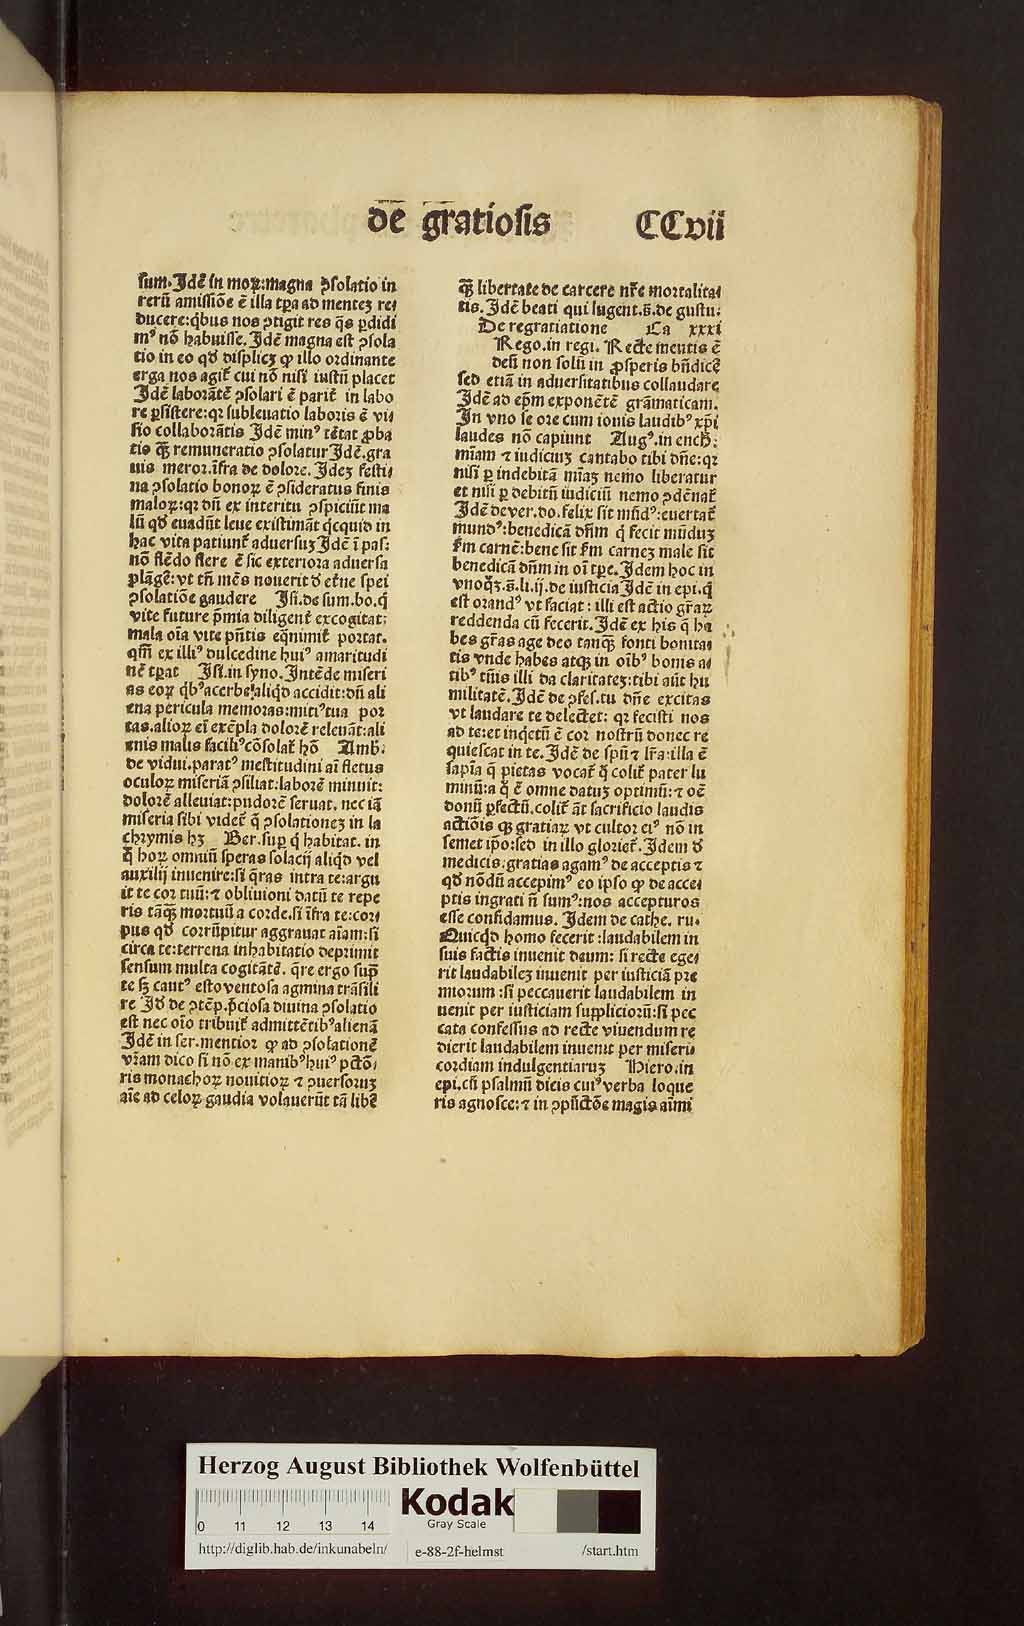 de gratiosis CCvii
sum. Idē in moꝝ: magna ꝯsolatio in
rerū amissiōe ē illa tꝑa ad menteʒ re
ducere: qbus nos ꝯtigit res q̄s ꝑdidi
mꝰ nō habuisse. Idē magna est ꝯsola
tio in eo qd̄ displicʒ ꝙ illo ordinante
erga nos agit᷑ cui nō nisi iustū placet
Idē laborātē ꝯsolari ē parit᷑ in labo
re ꝑsistere: qꝛ subleuatio laboris ē vi
sio collaborātis Idē minꝰ tētat ꝓba
tio q̄ʒ remuneratio ꝯsolatur Idē. gra
uis meror. īfra de dolore. Ideʒ festi
na ꝯsolatio bonoꝝ ē ꝯsideratus finis
maloꝝ: qꝛ dū ex interitu ꝯspiciūt ma
lū qd̄ euadūt leue existimāt qͥcquid in
hac vita patiunt᷑ aduersuʒ Idē ī pas:
nō flēdo flere ē sic exteriora aduersa
plāgē: vt tn̄ mēs nouerit d̄ et̄ne spei
ꝯsolatiōe gaudere Isi. de sum. bo. q̄
vite future p̄mia diligent᷑ excogitat:
mala oīa vite pn̄tis eq̄nimit᷑ portat.
qm̄ ex illiꝰ dulcedine huiꝰ amaritudi
nē tꝑat Isi. in syno. Intēde miseri
as eoꝝ qͥbꝰ acerbe aliqd accidit: dū ali
ena pericula memoras: mitiꝰ tua por
tas. alioꝝ ei exēpla dolorē releuāt: ali
enis malis faciliꝰ cōsolat᷑ hō Amb.
de vidui. paratꝰ mestitudini aī fletus
oculoꝝ miseriā ꝯsiliat: laborē minuit:
dolorē alleuiat: pudorē seruat. nec iā
miseria sibi videt᷑ q̄ ꝯsolationeʒ in la
chrymis hʒ Ber. sup q̄ habitat. in
q̄ hoꝝ omniū speras solacij aliqd vel
auxilij inuenire: si q̄ras intra te: argu
it te cor tuū: ⁊ obliuioni datū te repe
ris tāq̄ʒ mortuū a corde. si īfra te: cor
pus qd̄ corrūpitur aggrauat aīam: si
circa te: terrena inhabitatio deprimit
sensum multa cogitātē. q̄re ergo sup̄
te sʒ cautꝰ esto ventosa agmina trāsili
re Id̄ de ꝯtēp. p̄ciosa diuina ꝯsolatio
est nec oīo tribuit᷑ admittētibꝰ alienā
Idē in ser. mentior ꝙ ad ꝯsolationē
vr̄am dico si nō ex manibꝰ huiꝰ pctō
ris monachoꝝ nouitioꝝ ⁊ ꝯuersoruʒ
aīe ad celoꝝ gaudia volauerūt tā libē
q̄ʒ libertate de carcere nr̄e mortalita
tis. Idē beati qui lugent. s̄. de gustu.
De regratiatione Ca xxxi
Rego. in regi. Recte mentis ē
deū non solū in ꝓsperis bn̄dicē
sed etiā in aduersitatibus collaudare
Idē ad ep̄m exponētē grāmaticam.
In vno se ore cum iouis laudibꝰ xp̄i
laudes nō capiunt Augꝰ. in ench.
mīam ⁊ iudiciuʒ cantabo tibi dn̄e: qꝛ
nisi ꝑ indebitā mīaʒ nemo liberatur
et nisi ꝑ debitū iudiciū nemo ꝯdēnat᷑
Idē de ver. do. felix sit mūdꝰ: euertat᷑
mundꝰ: benedicā dn̄m q̄ fecit mūduʒ
s̄m carnē: bene sit s̄m carneʒ male sit
benedicā dn̄m in oī tꝑe. Idem hoc in
vnoqʒ. s̄. li. ij. de iusticia Idē in epi. q̄
est orandꝰ vt faciat: illi est actio gr̄aꝝ
reddenda cū fecerit. Idē ex his q̄ ha
bes gr̄as age deo tanq̄ʒ fonti bonita
tis vnde habes atqʒ in oībꝰ bonis a
tibꝰ tuis illi da claritateʒ: tibi aūt hu
militatē. Idē de ꝯfes. tu dn̄e excitas
vt laudare te delectet: qꝛ fecisti nos
ad te: et inqetū ē cor nostrū donec re
quiescat in te. Idē de spū ⁊ lr̄a: illa ē
sapīa q̄ pietas vocat᷑ q̄ colit᷑ pater lu
minū: a q̄ ē omne datuʒ optimū: ⁊ oē
donū ꝑfectū. colit᷑ āt sacrificio laudis
actiōis qʒ gratiaꝝ vt cultor eiꝰ nō in
semet ip̄o: sed in illo gloriet᷑. Idem d̄
medicis. gratias agamꝰ de acceptis ⁊
qd̄ nōdū accepimꝰ eo ipso ꝙ de acce
ptis ingrati n̄ sumꝰ: nos accepturos
esse confidamus. Idem de cathe. ru.
Quicqd homo fecerit: laudabilem in
suis factis inuenit deum: si recte ege
rit laudabileʒ inuenit per iusticiā pre
miorum: si peccauerit laudabilem in
uenit per iusticiam suppliciorū: si pec
cata confessus ad recte viuendum re
dierit laudabilem inuenit per miseri
cordiam indulgentiaruʒ Hiero. in
epi. cū psalmū dicis cuiꝰ verba loque
ris agnosce: ⁊ in ꝯpūctōe magis aīmi
Herzog August Bibliothek Wolfenbüttel
0 11 12 13 14
Kodak
Gray Scale
http://diglib.hab.de/inkunabeln/ e-88-2f-helmst /start.htm